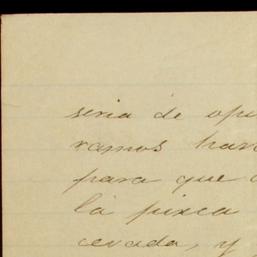 seria de opi
ramos hara
para que
la pisca
cevada, y